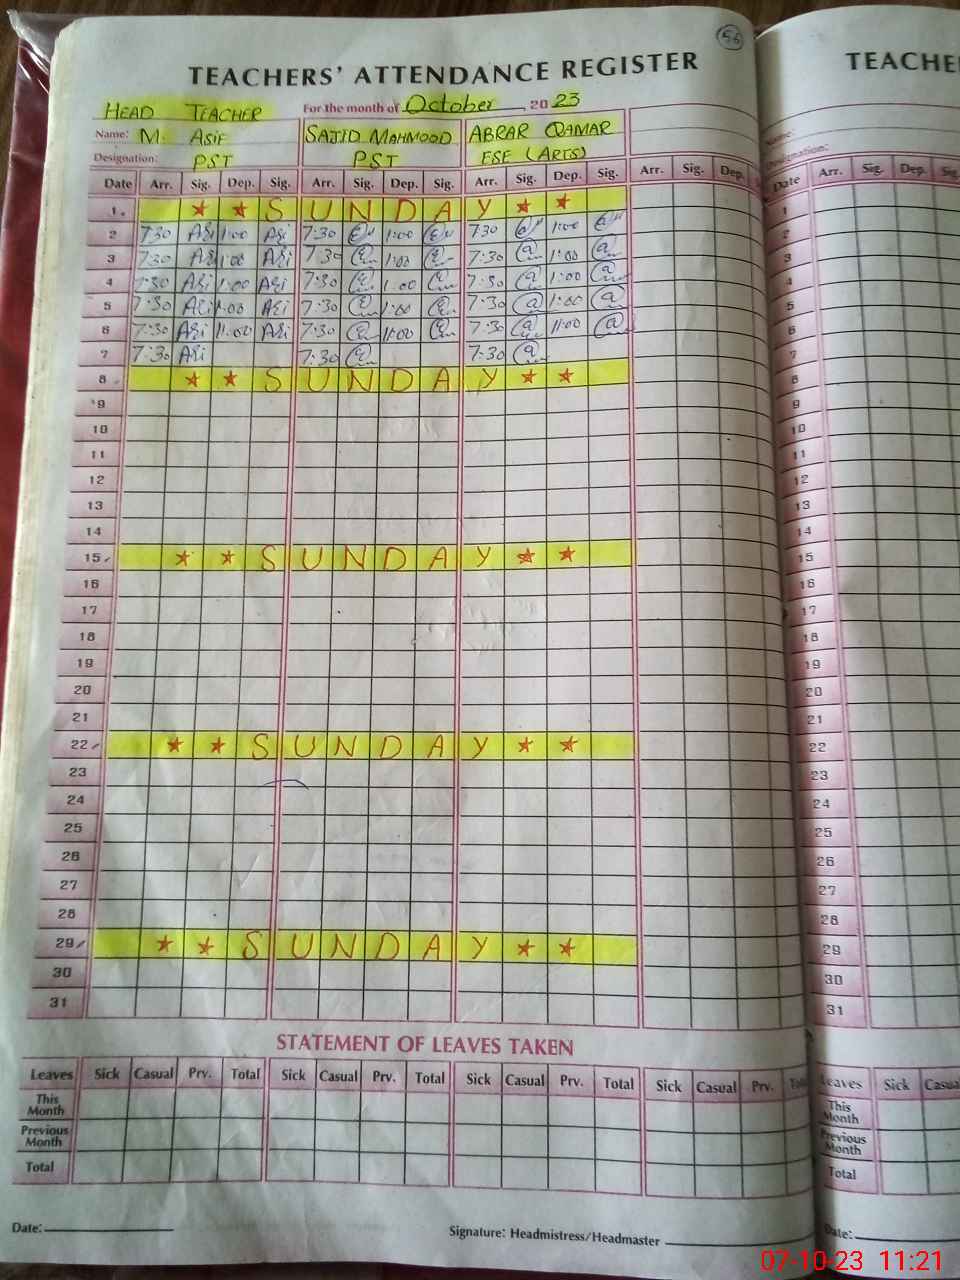 56
TEACHERS' ATTENDANCE REGISTER
HEAD TEACHER For the month of October, 2023
Name: M. ASIF SAJID MAHMOOD ABRAR QAMAR
Designation: PST PST ESE (ARTS)
Date Arr. Sig. Dep. Sig. Arr. Sig. Dep. Sig. Arr. Sig. Dep. Sig. Arr. Sig. Dep.
1 ★ ★ S U N D A Y ★ ★
2 7:30 Asi 1:00 Asi 7:30 1:00 7:30 1:00
3 7:30 Asi 1:00 Asi 7:30 1:00 7:30 1:00
4 7:30 Asi 1:00 Asi 7:30 1:00 7:30 1:00
5 7:30 Asi 1:00 Asi 7:30 1:00 7:30 1:00
6 7:30 Asi 11:00 Asi 7:30 11:00 7:30 11:00
7 7:30 Asi 7:30 7:30
8 ★ ★ S U N D A Y ★ ★
9
10
11
12
13
14
15 ★ ★ S U N D A Y ★ ★
16
17
18
19
20
21
22 ★ ★ S U N D A Y ★ ★
23
24
25
26
27
28
29 ★ ★ S U N D A Y ★ ★
30
31
STATEMENT OF LEAVES TAKEN
Leaves Sick Casual Prv. Total Sick Casual Prv. Total Sick Casual Prv. Total Sick Casual Prv.
This Month
Previous Month
Total
Date: Signature: Headmistress/Headmaster
TEACHE
Name:
Designation:
Date Arr. Sig. Dep. Sig.
1
2
3
4
5
6
7
8
9
10
11
12
13
14
15
16
17
18
19
20
21
22
23
24
25
26
27
28
29
30
31
Leaves Sick Casua
This Month
Previous Month
Total
Date:
07-10-23 11:21